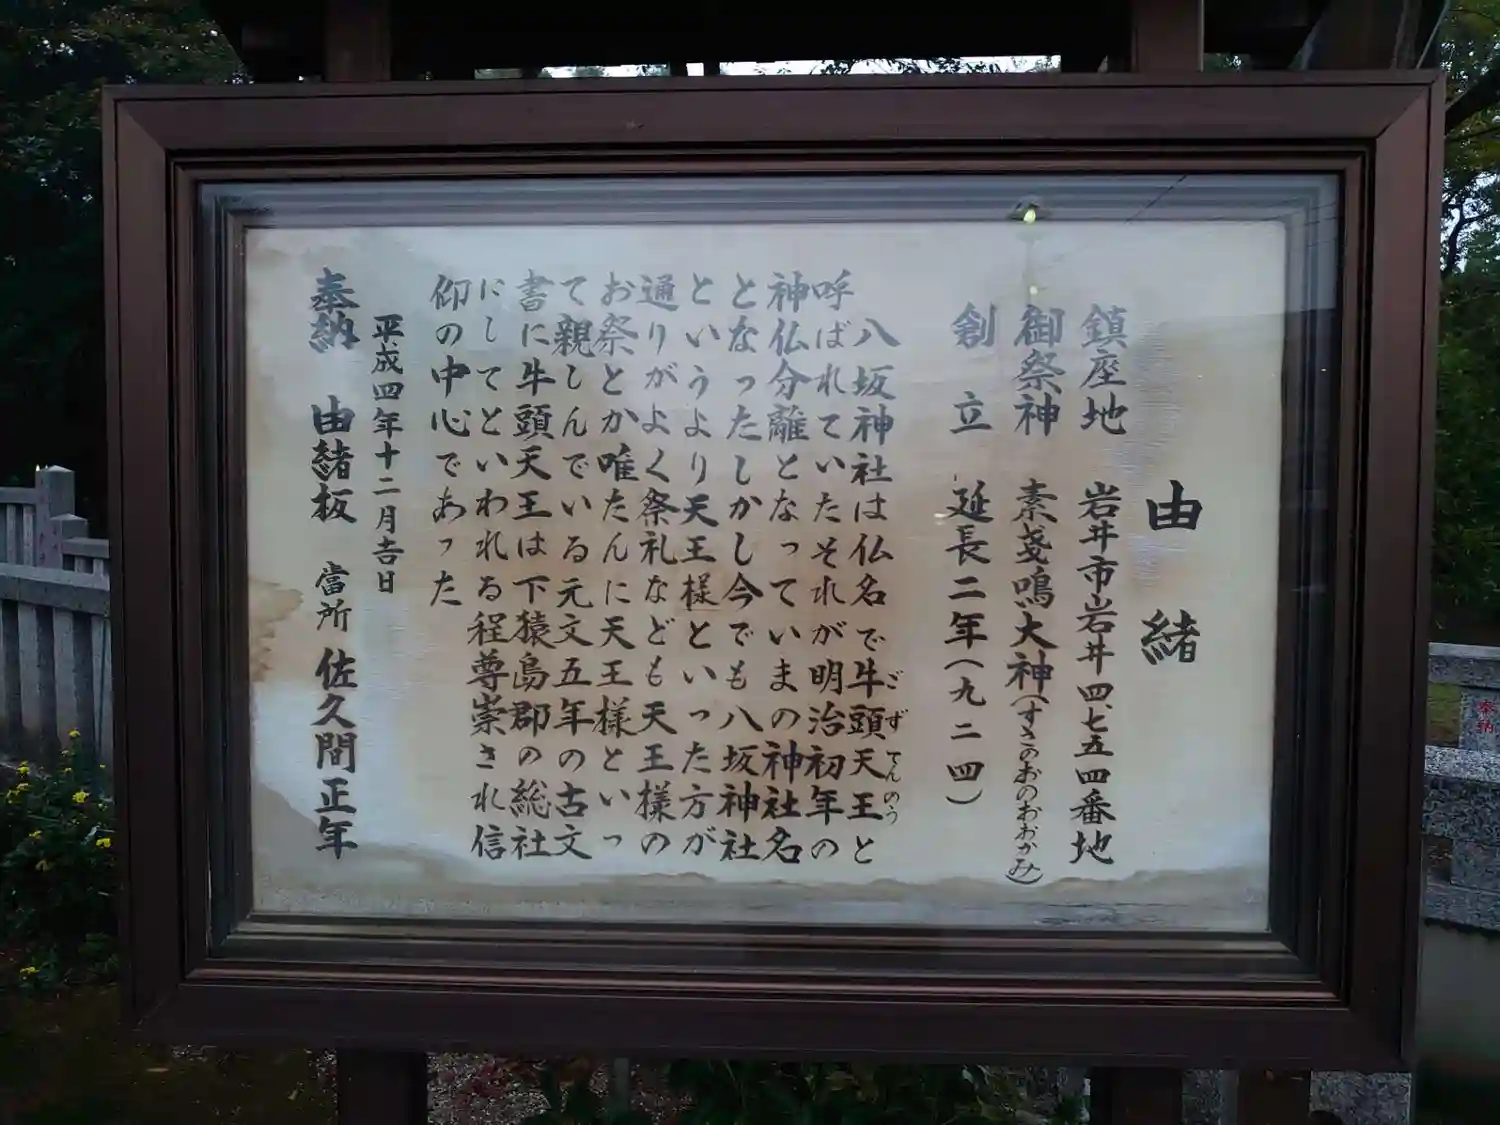 由緒
鎮座地 岩井市岩井四、七五四番地
御祭神 素戔嗚大神(すさのおのおおかみ)
創立 延長二年(九二四)
八坂神社は仏名で牛頭天王と
ごずてんのう
呼ばれていたそれが明治初年の
神仏分離となっていまの神社名
となったしかし今でも八坂神社
というより天王様といった方が
通りがよく祭礼なども天王様の
お祭とか唯たんに天王様といっ
て親しんでいる元文五年の古文
書に牛頭天王は下猿島郡の総社
にしてといわれる程尊崇され信
仰の中心であった
平成四年十二月吉日
奉納 由緒板 當所 佐久間正年
奉納